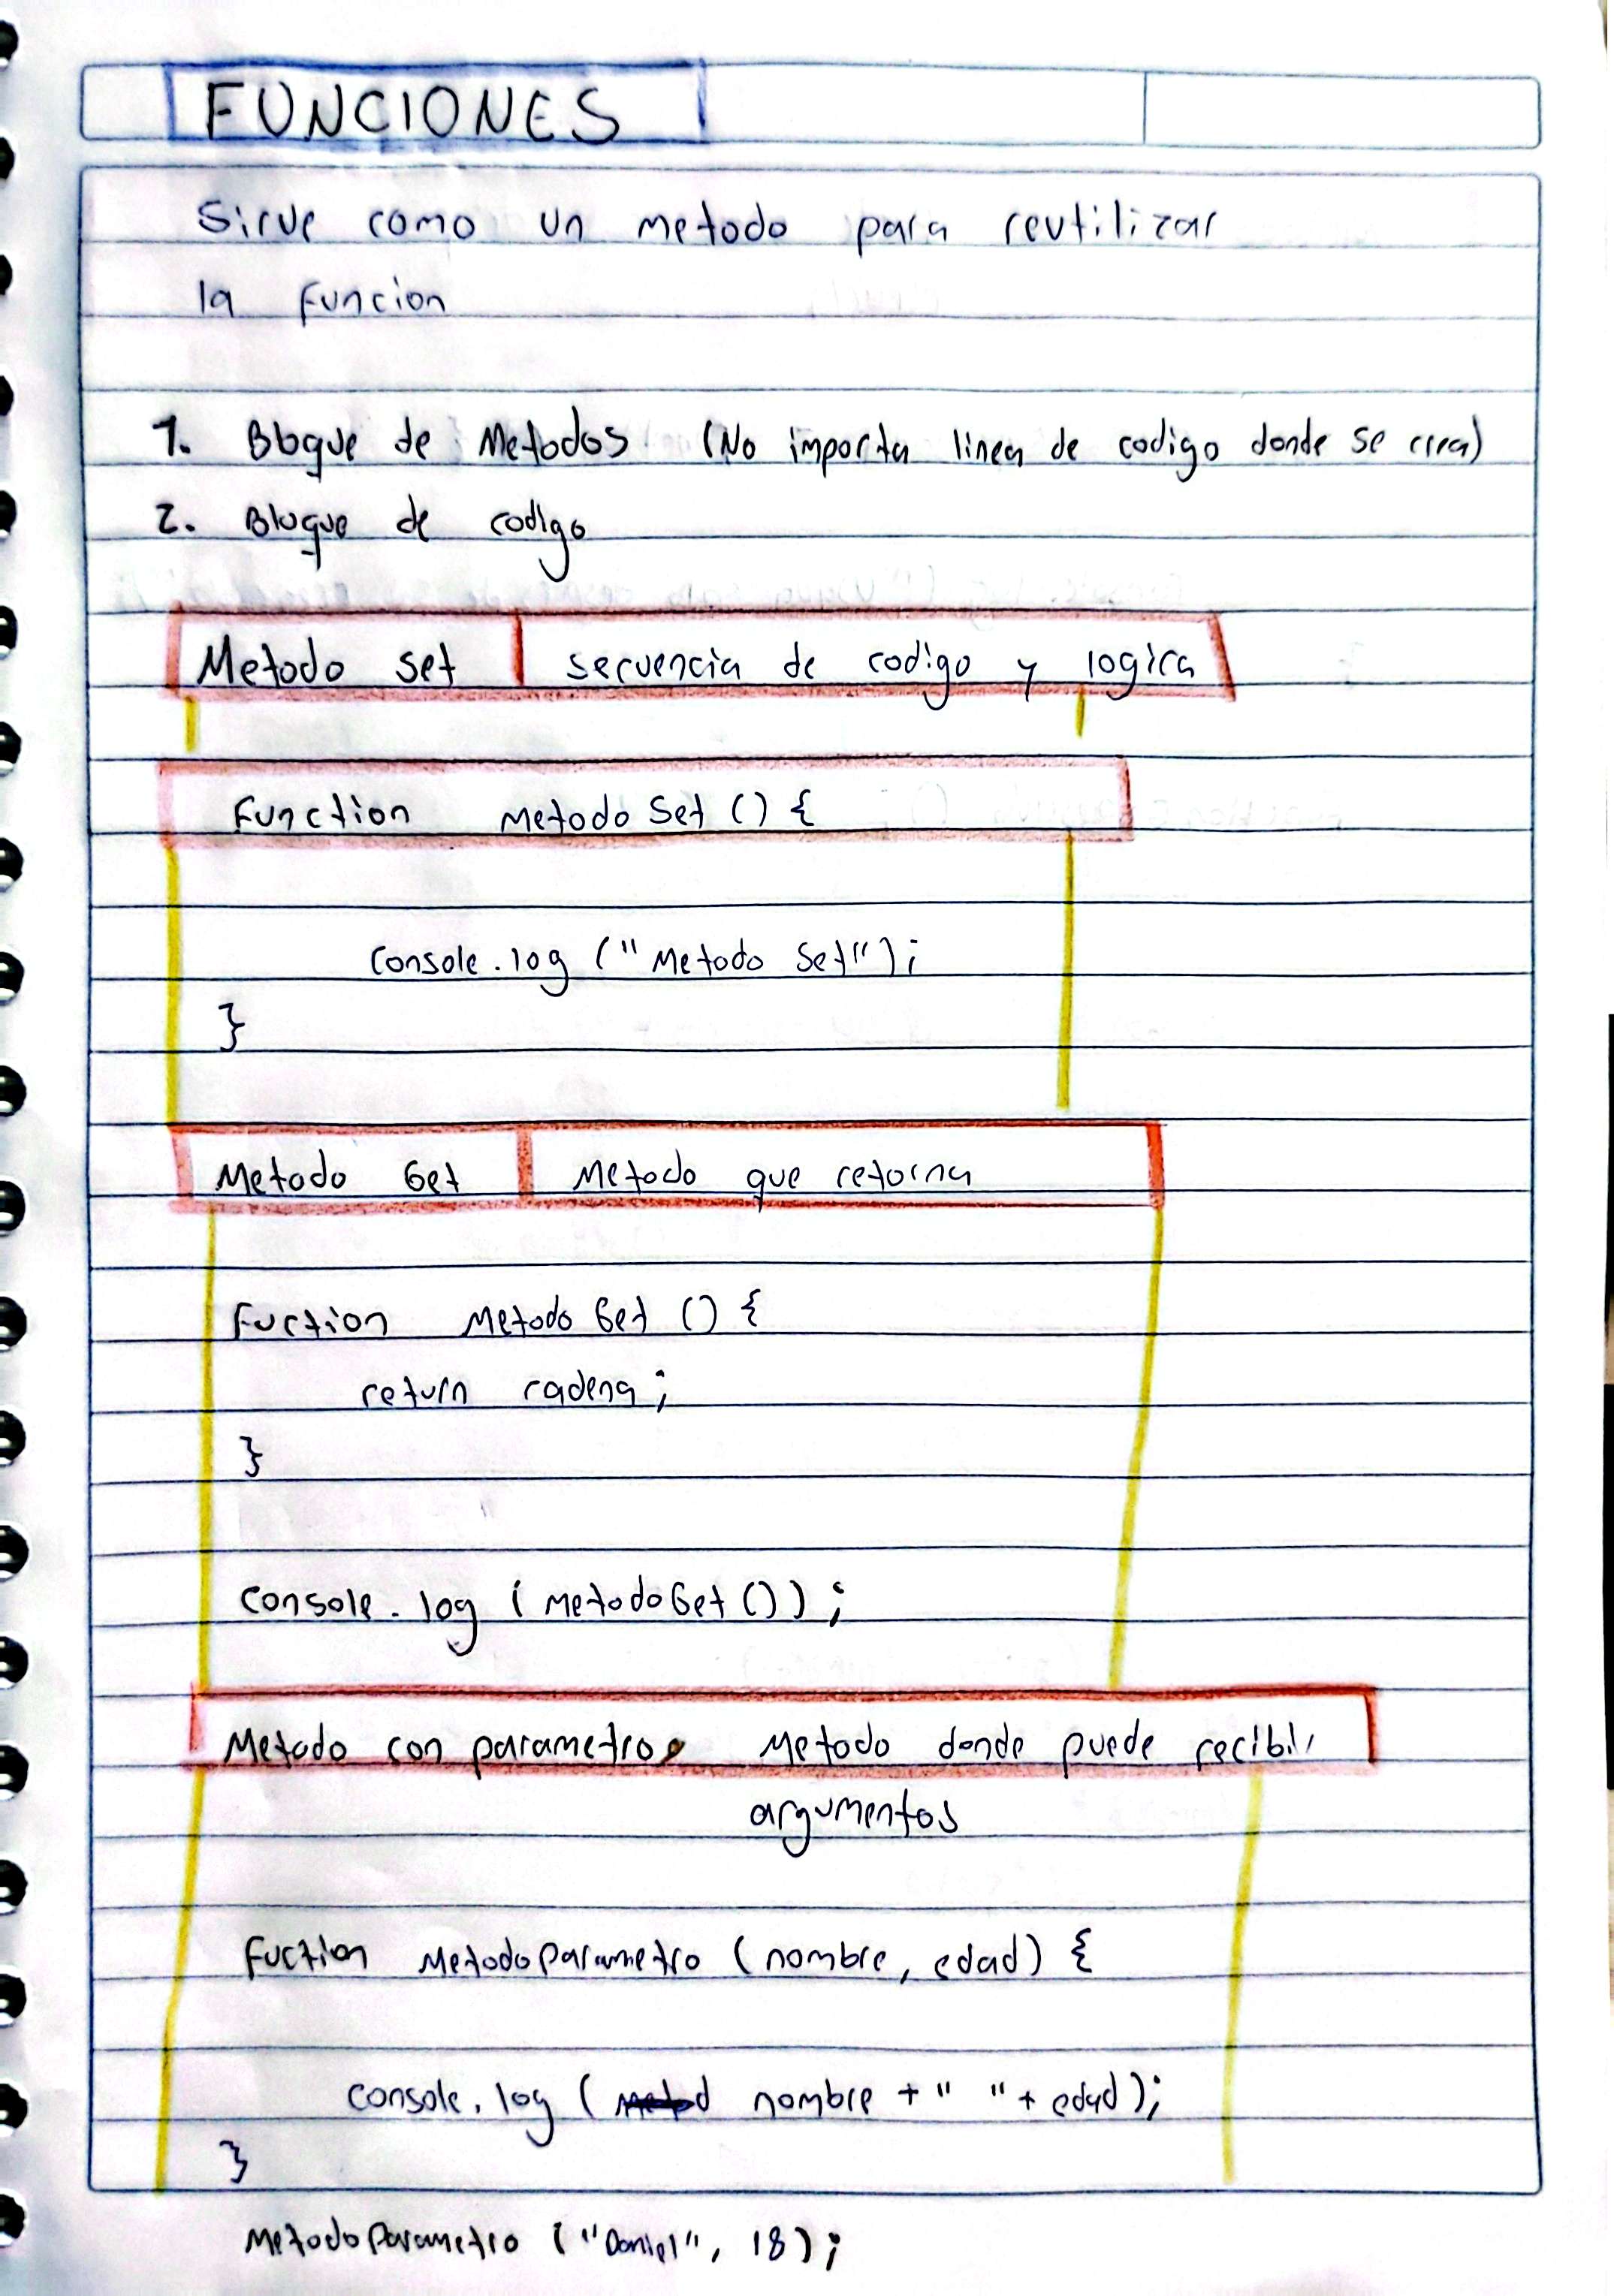 FUNCIONES
Sirve como un metodo para reutilizar
la funcion
1. Bloque de Metodos (No importa linea de codigo donde se crea)
2. Bloque de codigo
Metodo set secuencia de codigo y logica
Function metodo Set () {
Console.log ("Metodo Set");
}
Metodo Get Metodo que retorna
Fuction Metodo Get () {
return cadena;
}
Console.log (metodoGet ());
Metodo con parametros Metodo donde puede recibir
argumentos
Fuction MetodoParametro (nombre, edad) {
console.log ( nombre + " " + edad);
}
MetodoParametro ("Daniel", 18);